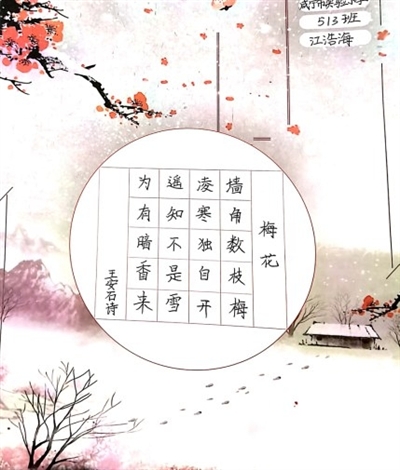 咸宁市实验小学
513班
江浩海
梅花
墙角数枝梅
凌寒独自开
遥知不是雪
为有暗香来
王安石诗